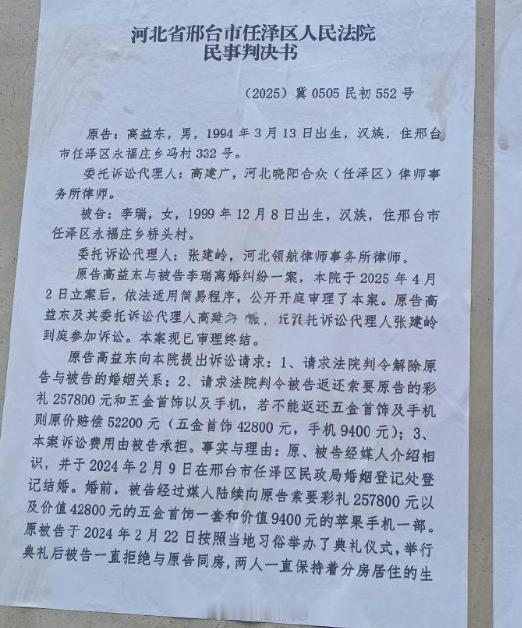 河北省邢台市任泽区人民法院
民事判决书
（2025）冀 0505 民初 552 号
原告：高益东，男，1994 年 3 月 13 日出生，汉族，住邢台
市任泽区永福庄乡冯村 332 号。
委托诉讼代理人：高建广，河北晓阳合众（任泽区）律师事
务所律师。
被告：李瑞，女，1999 年 12 月 8 日出生，汉族，住邢台市
任泽区永福庄乡桥头村。
委托诉讼代理人：张建岭，河北领航律师事务所律师。
原告高益东与被告李瑞离婚纠纷一案，本院于 2025 年 4 月
2 日立案后，依法适用简易程序，公开开庭审理了本案。原告高
益东及其委托诉讼代理人高建 托诉讼代理人张建岭
到庭参加诉讼。本案现已审理终结。
原告高益东向本院提出诉讼请求：1、请求法院判令解除原
告与被告的婚姻关系；2、请求法院判令被告返还索要原告的彩
礼 257800 元和五金首饰以及手机，若不能返还五金首饰及手机
则原价赔偿 52200 元（五金首饰 42800 元，手机 9400 元）；3、
本案诉讼费用由被告承担。事实与理由：原、被告经媒人介绍相
识，并于 2024 年 2 月 9 日在邢台市任泽区民政局婚姻登记处登
记结婚。婚前，被告经过媒人陆续向原告索要彩礼 257800 元以
及价值 42800 元的五金首饰一套和价值 9400 元的苹果手机一部。
原被告于 2024 年 2 月 22 日按照当地习俗举办了典礼仪式，举行
典礼后被告一直拒绝与原告同房，两人一直保持着分房居住的生